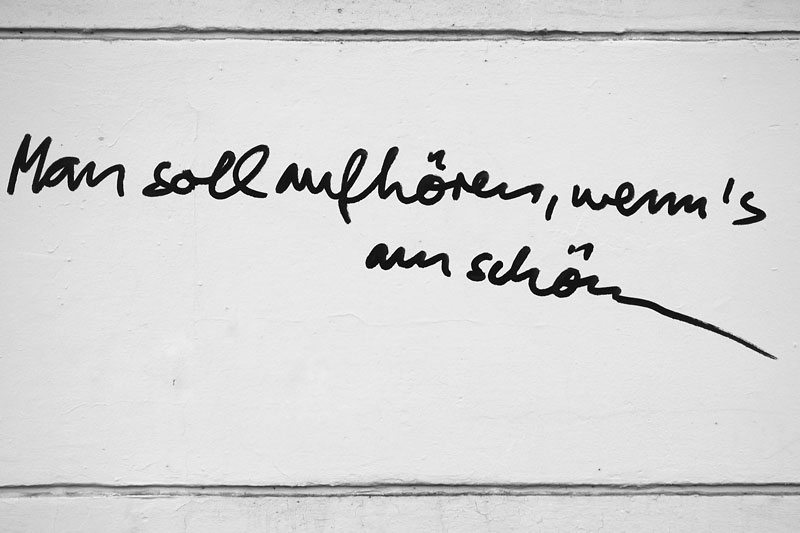 Man soll aufhören, wenn's
am schön